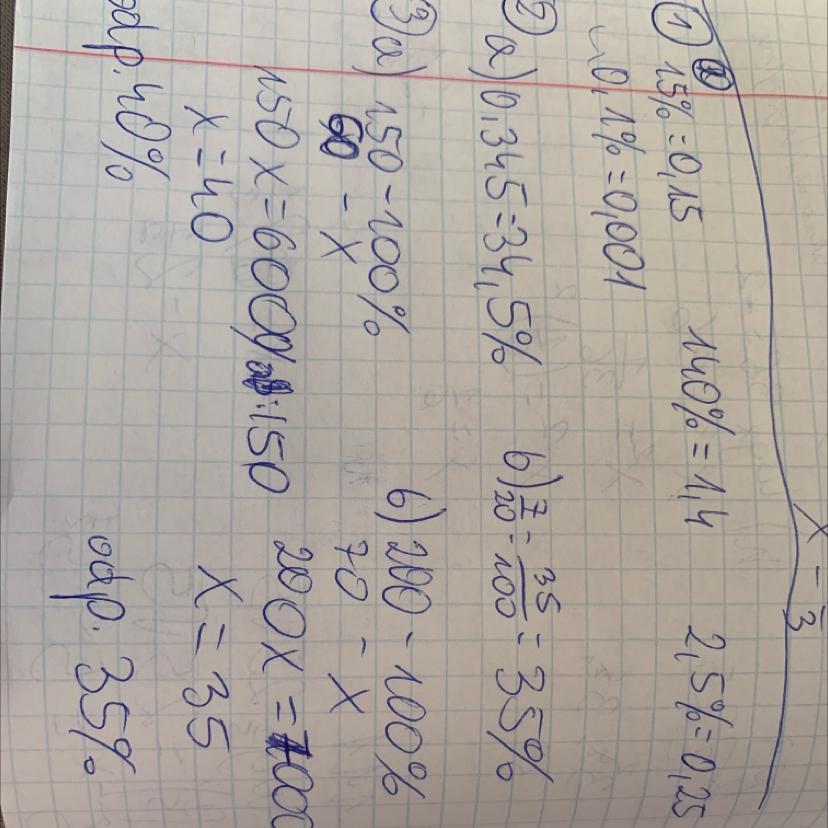 x = 3
① 15% = 0,15 140% = 1,4 2,5% = 0,25
0,1% = 0,001
② a) 0,345 = 34,5% b) 7/20 = 35/100 = 35%
③ a) 150 - 100% b) 200 - 100%
60 - x 70 - x
150x = 6000 :150 200x = 7000
x = 40 x = 35
odp. 40% odp. 35%